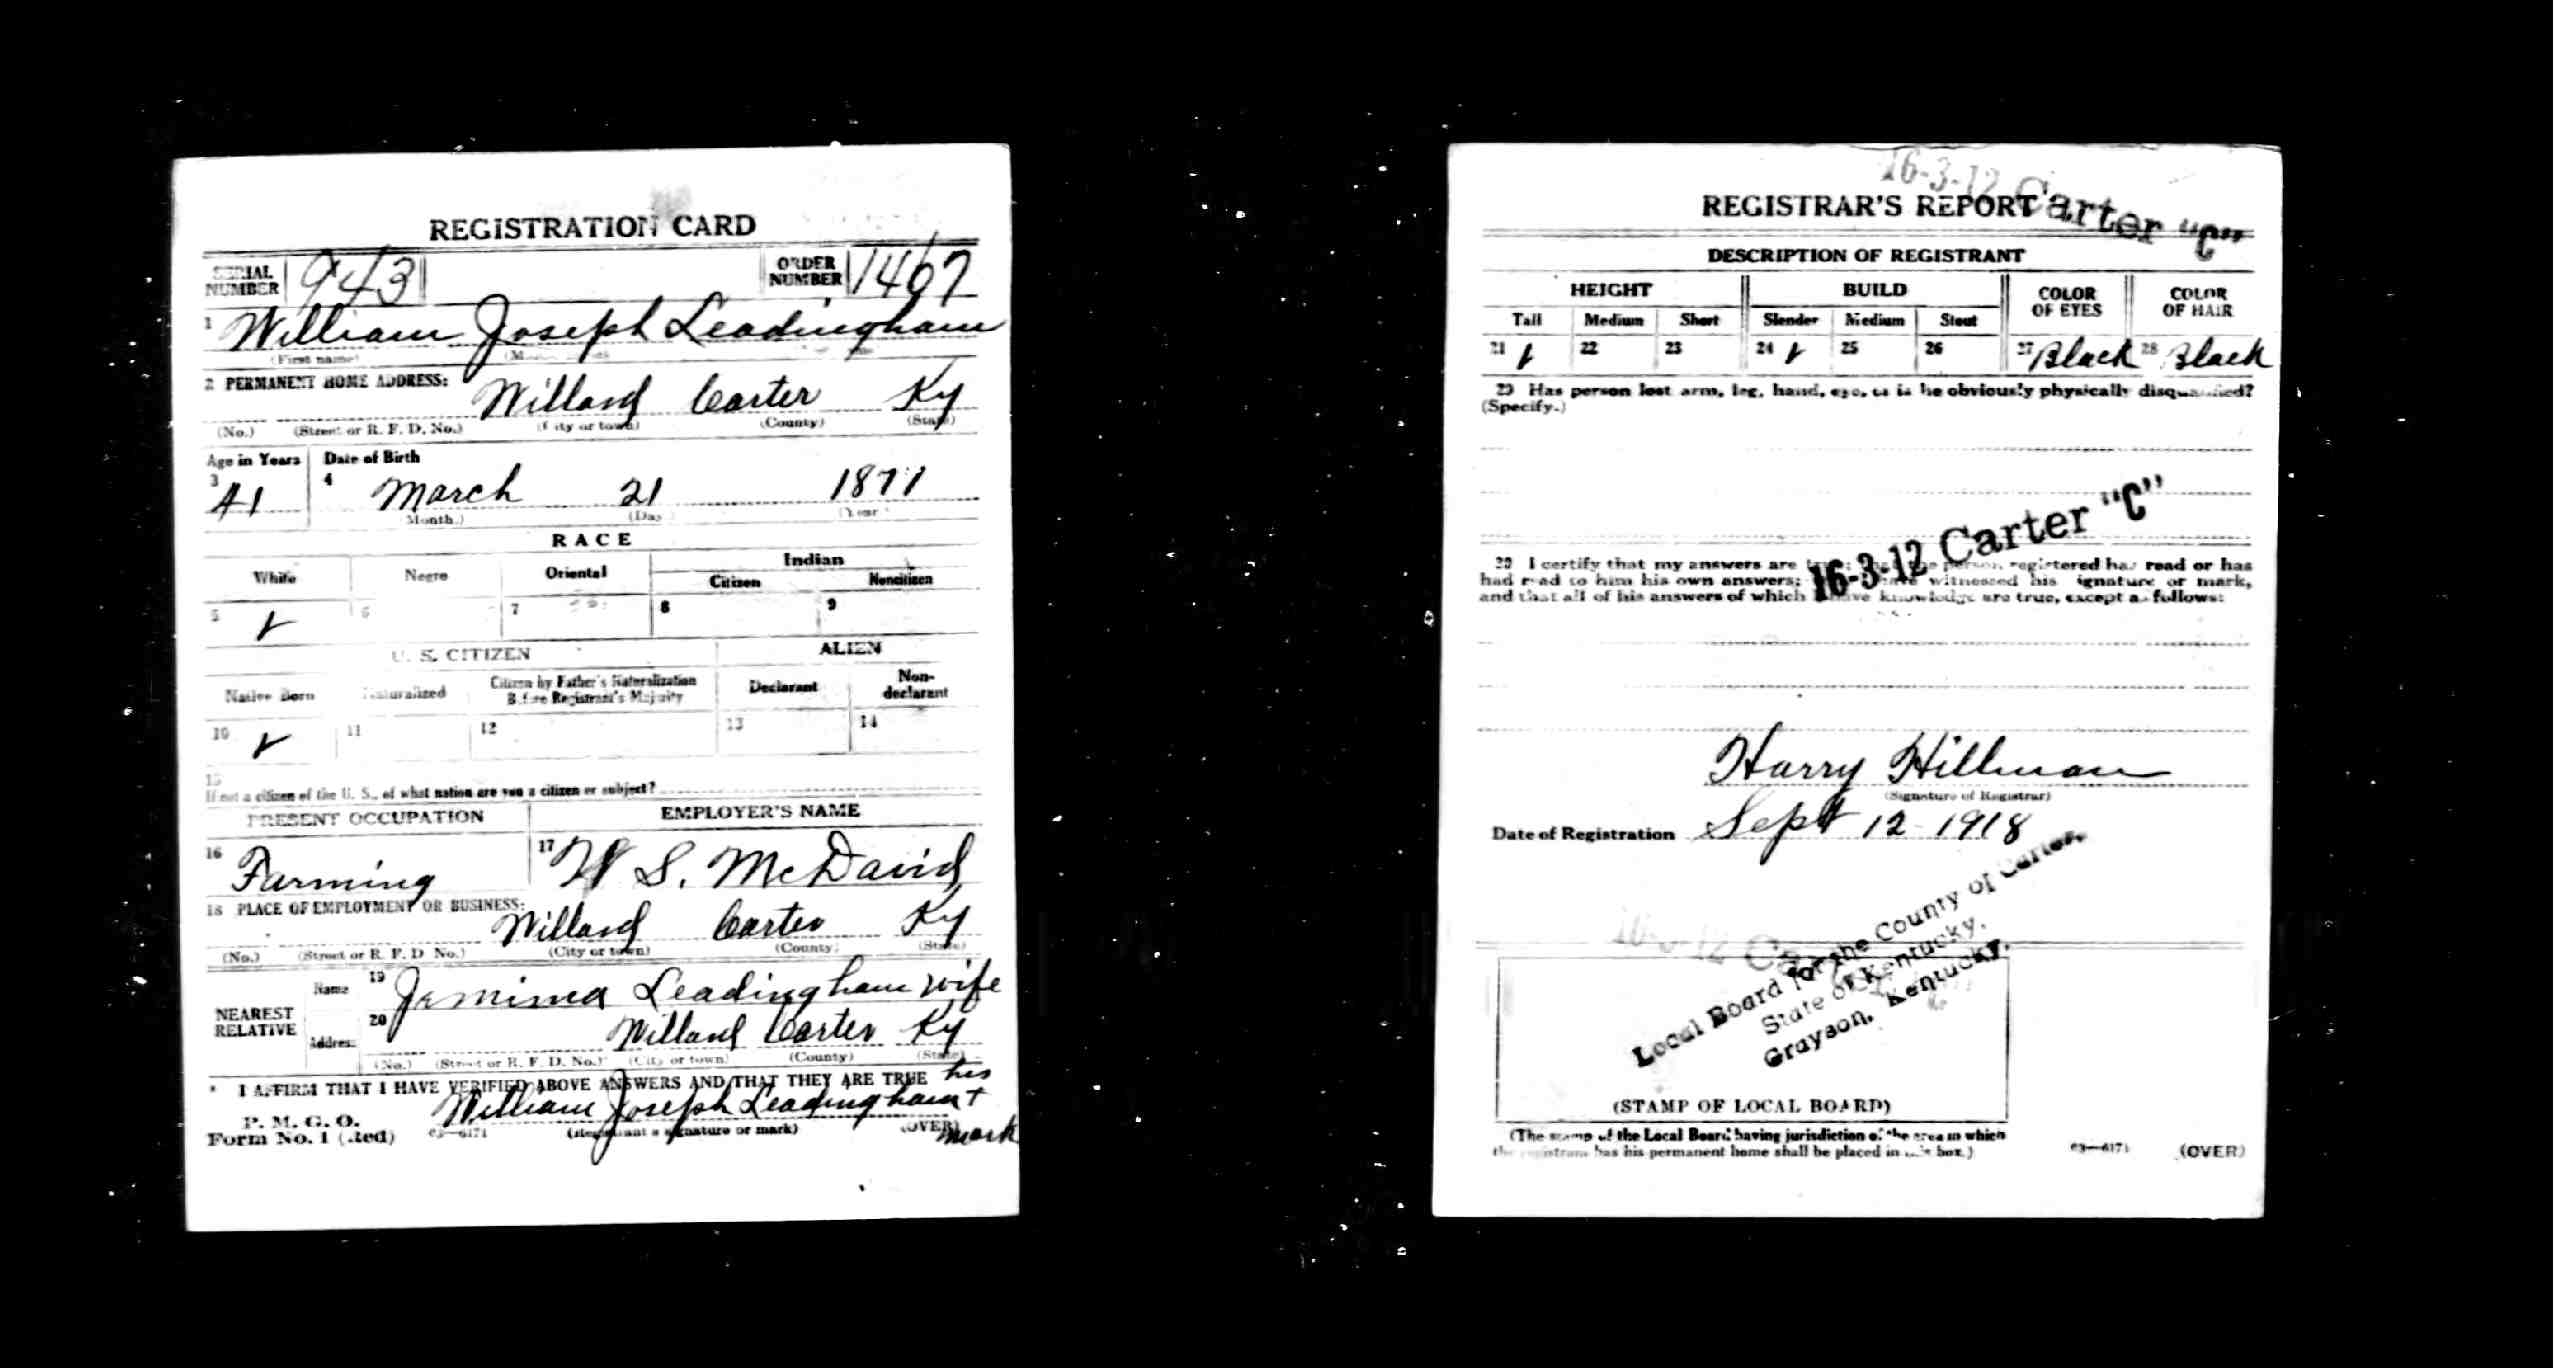 REGISTRATION CARD
SERIAL NUMBER 943 ORDER NUMBER 1467
1 William Joseph Leadingham
(First name)
2 PERMANENT HOME ADDRESS: Willard Carter Ky
(No.) (Street or R. F. D. No.) (City or town) (County) (State)
Age in Years Date of Birth
3 41 4 March 21 1877
(Month.) (Day.) (Year.)
RACE
White Negro Oriental Indian
Citizen Noncitizen
5 ✓ 6 7 8 9
U. S. CITIZEN ALIEN
Native Born Naturalized Citizen by Father's Naturalization Before Registrant's Majority Declarant Non-declarant
10 ✓ 11 12 13 14
15
If not a citizen of the U. S., of what nation are you a citizen or subject?
PRESENT OCCUPATION EMPLOYER'S NAME
16 Farming 17 W S. McDavid
18 PLACE OF EMPLOYMENT OR BUSINESS:
Willard Carter Ky
(No.) (Street or R. F. D. No.) (City or town) (County) (State)
NEAREST RELATIVE Name 19 Jemima Leadingham wife
Address 20 Willard Carter Ky
(No.) (Street or R. F. D. No.) (City or town) (County) (State)
I AFFIRM THAT I HAVE VERIFIED ABOVE ANSWERS AND THAT THEY ARE TRUE his
William Joseph Leadingham +
P. M. G. O.
Form No. 1 (Red) 03—6171 (Registrant's signature or mark) (OVER) mark
16-3-12 Carter "C"
REGISTRAR'S REPORT
DESCRIPTION OF REGISTRANT
HEIGHT BUILD COLOR OF EYES COLOR OF HAIR
Tall Medium Short Slender Medium Stout
21 ✓ 22 23 24 ✓ 25 26 27 Black 28 Black
29 Has person lost arm, leg, hand, eye, or is he obviously physically disqualified?
(Specify.)
16-3-12 Carter "C"
30 I certify that my answers are true; that the person registered has read or has
had read to him his own answers; that I have witnessed his signature or mark,
and that all of his answers of which I have knowledge are true, except as follows:
Harry Hillman
(Signature of Registrar)
Date of Registration Sept 12 - 1918
16-3-12
Local Board for the County of Carter,
State of Kentucky,
Grayson, Kentucky.
(STAMP OF LOCAL BOARD)
(The stamp of the Local Board having jurisdiction of the area in which
the registrant has his permanent home shall be placed in this box.)
03—6171 (OVER)